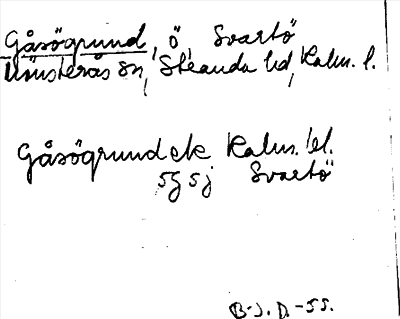 Gåsögrund, ö, Svartö
Mönsterås sn, Stranda hd, Kalm. l.
Gåsögrund ek Kalm. bl.
5g 5j Svartö
B-J. D. -55.